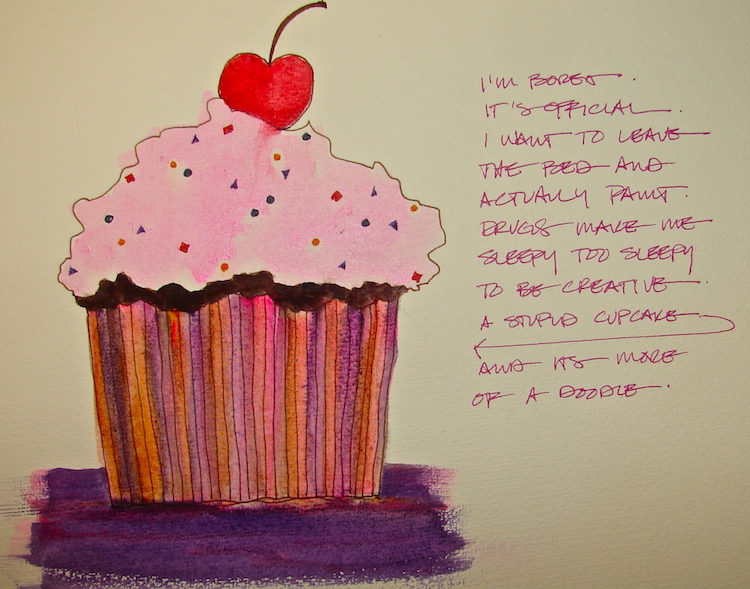 I'M BORED.
IT'S OFFICIAL.
I WANT TO LEAVE
THE BED AND
ACTUALLY PAINT.
DRUGS MAKE ME
SLEEPY TOO SLEEPY
TO BE CREATIVE.
A STUPID CUPCAKE
AND ITS MORE
OF A DOODLE.